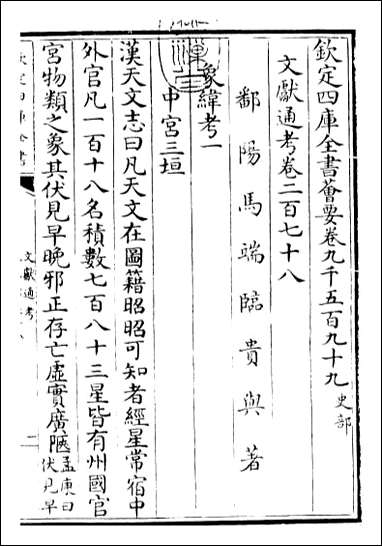 欽定四庫全書薈要卷九千五百九十九 史部
文獻通考卷二百七十八
鄱陽馬端臨貴與著
象緯考一
中宮三垣
漢天文志曰凡天文在圖籍昭昭可知者經星常宿中
外官凡一百十八名積數七百八十三星皆有州國官
宮物類之象其伏見早晚邪正存亡虛實廣陿孟康曰伏見早
欽定四庫全書
文獻通考